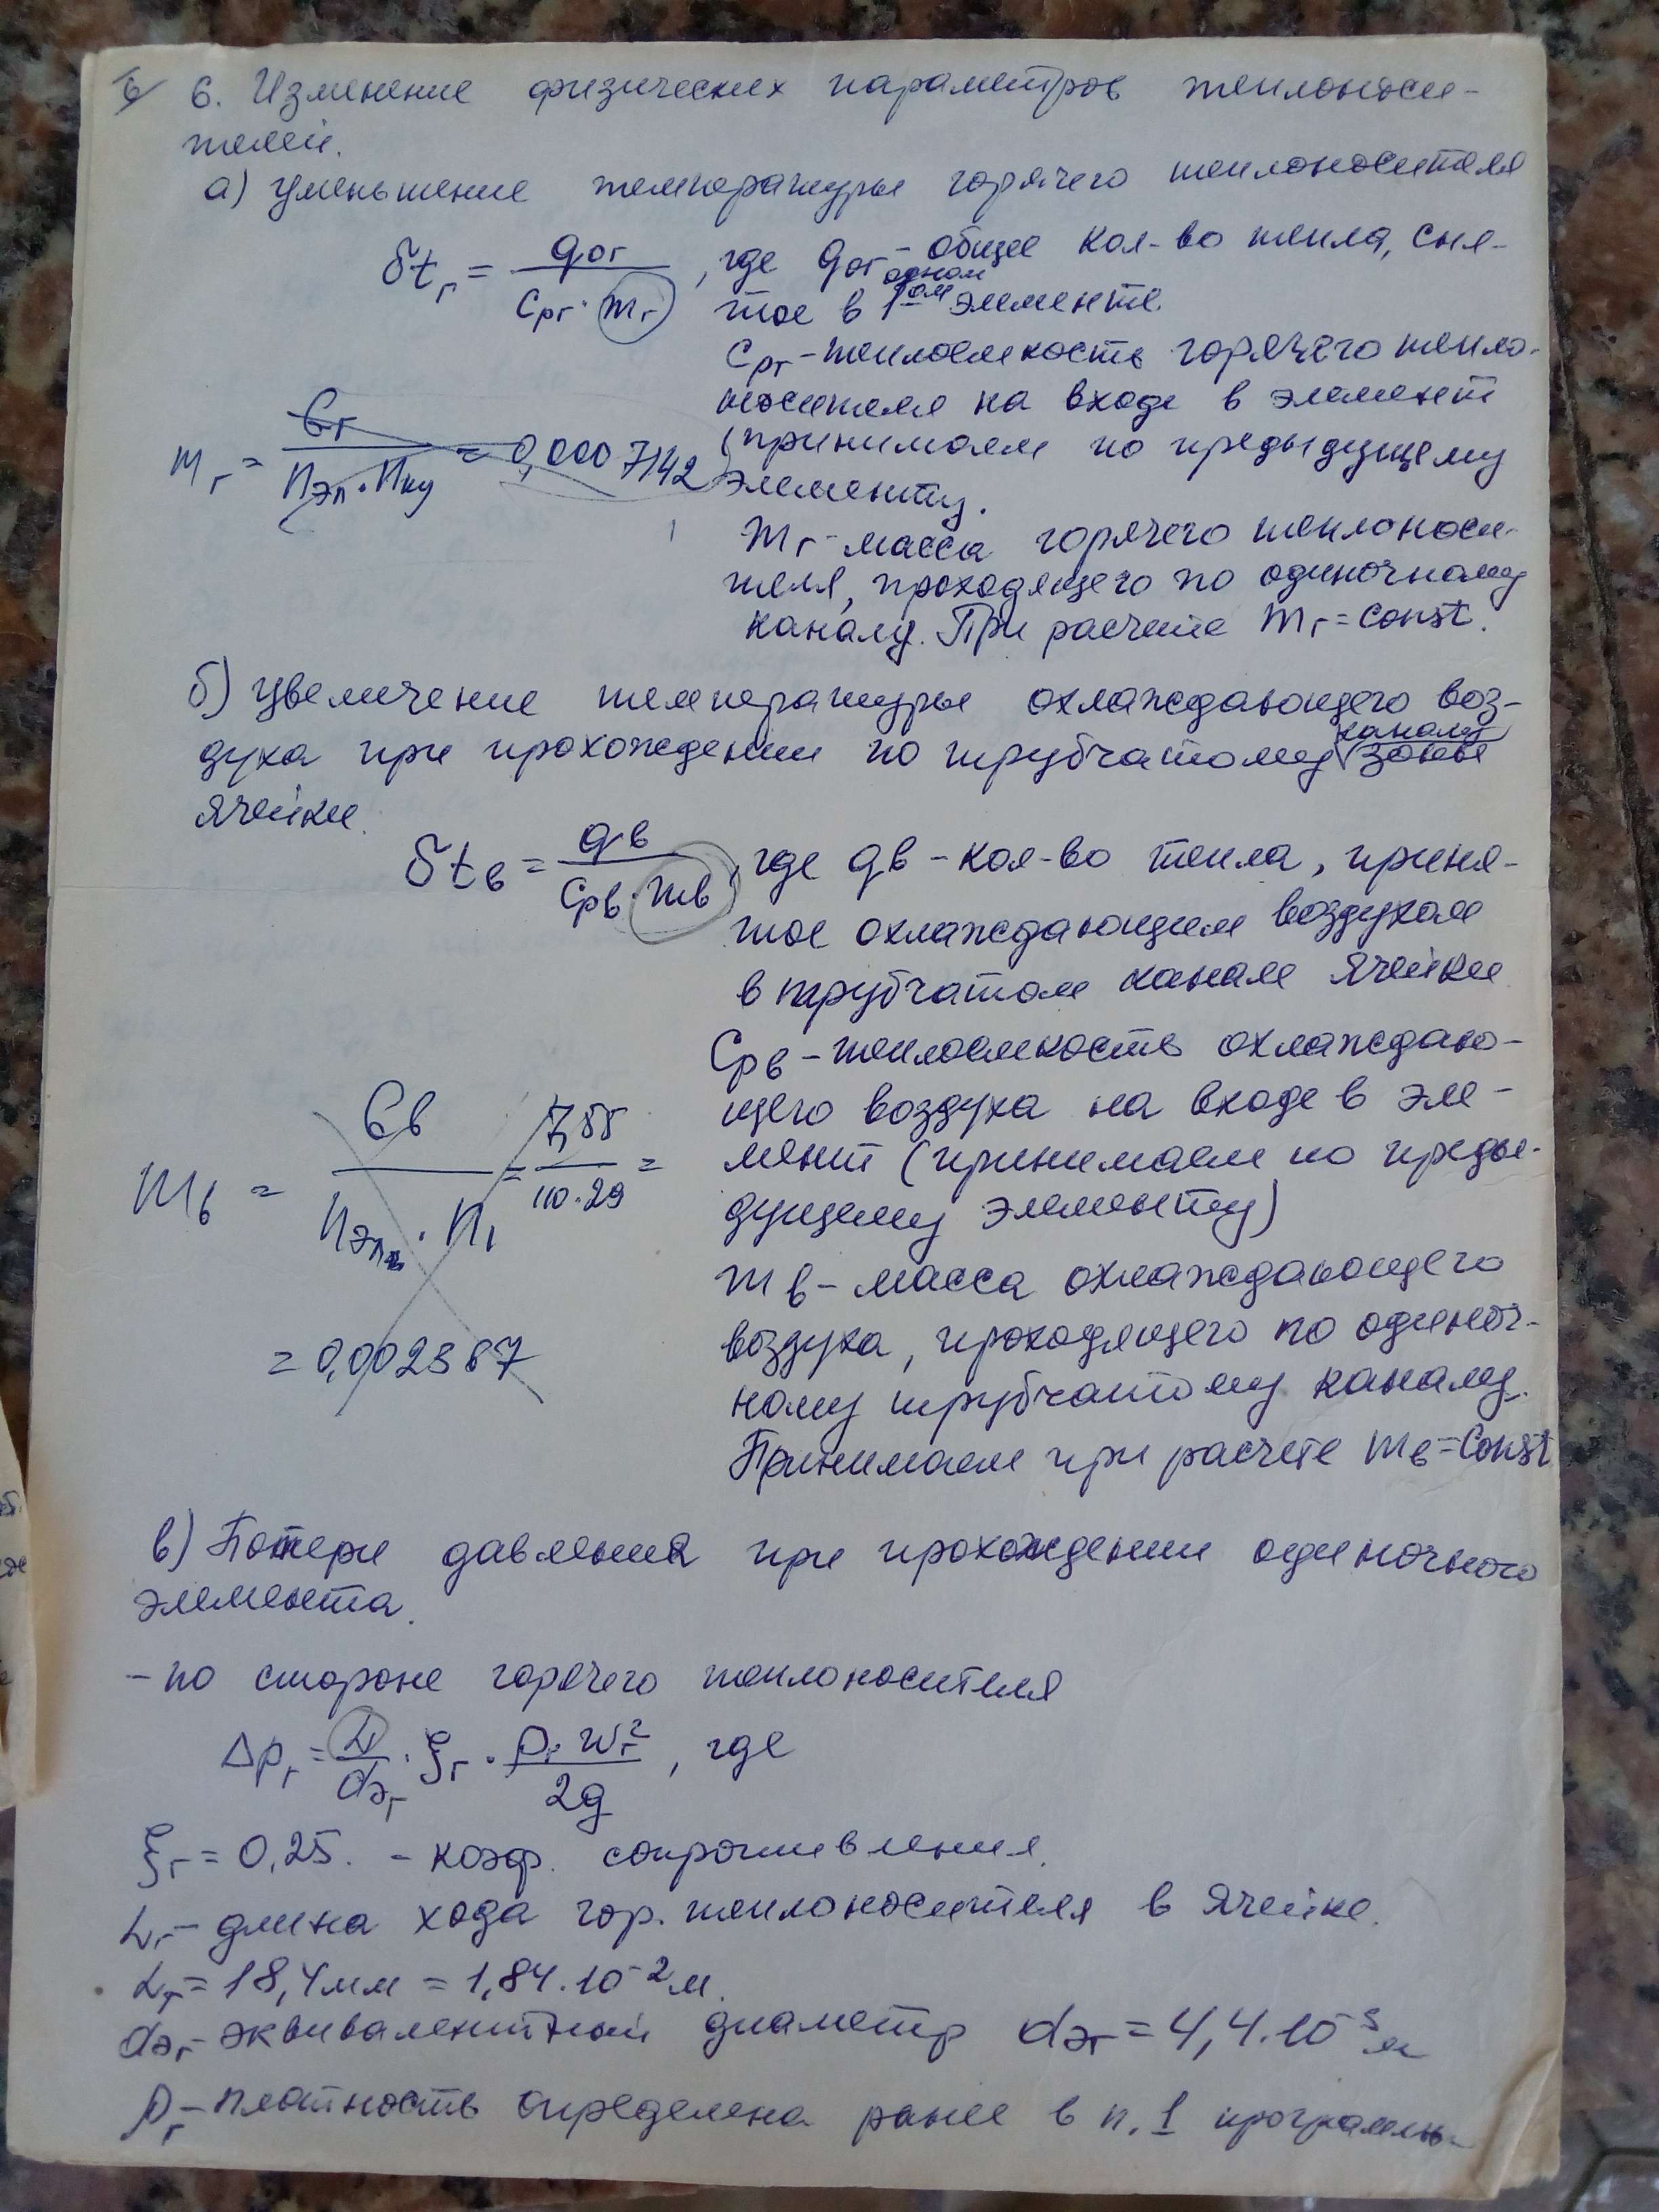 6. Изменение физических параметров теплоноси-
телей.
а) уменьшение температуры горячего теплоносителя
δtг = qог / (Cрг · mг) , где qог - общее кол-во тепла, сня-
одном
тое в 1ом элементе.
Cрг - теплоемкость горячего тепло-
носителя на входе в элемент
(принимаем по предыдущему
элементу.
mг = Gг / (nэл · nку) = 0,0007142
mг - масса горячего теплоноси-
теля, проходящего по одиночному
каналу. При расчете mг = const.
б) увеличение температуры охлаждающего воз-
каналу
духа при прохождении по трубчатому зоны
ячейки.
δtв = qв / (Cрв · mв) , где qв - кол-во тепла, приня-
тое охлаждающим воздухом
в трубчатом канале ячейки
Cрв - теплоемкость охлаждаю-
щего воздуха на входе в эле-
мент (принимаем по преды-
дущему элементу)
mв = Gв / (nэл · n1) = 7,55 / (110·29) =
= 0,002367
mв - масса охлаждающего
воздуха, проходящего по одиноч-
ному трубчатому каналу.
Принимаем при расчете mв = Const
в) Потери давления при прохождении одиночного
элемента.
- по стороне горячего теплоносителя
Δpг = L / dэг · ξг · ρг · wг² / 2g , где
ξг = 0,25. - коэф. сопротивления.
Lг - длина хода гор. теплоносителя в ячейке.
Lг = 18,4 мм = 1,84·10⁻² м.
dэг - эквивалентный диаметр dэг = 4,4·10⁻³ м
ρг - плотность определена ранее в п. 1 программы